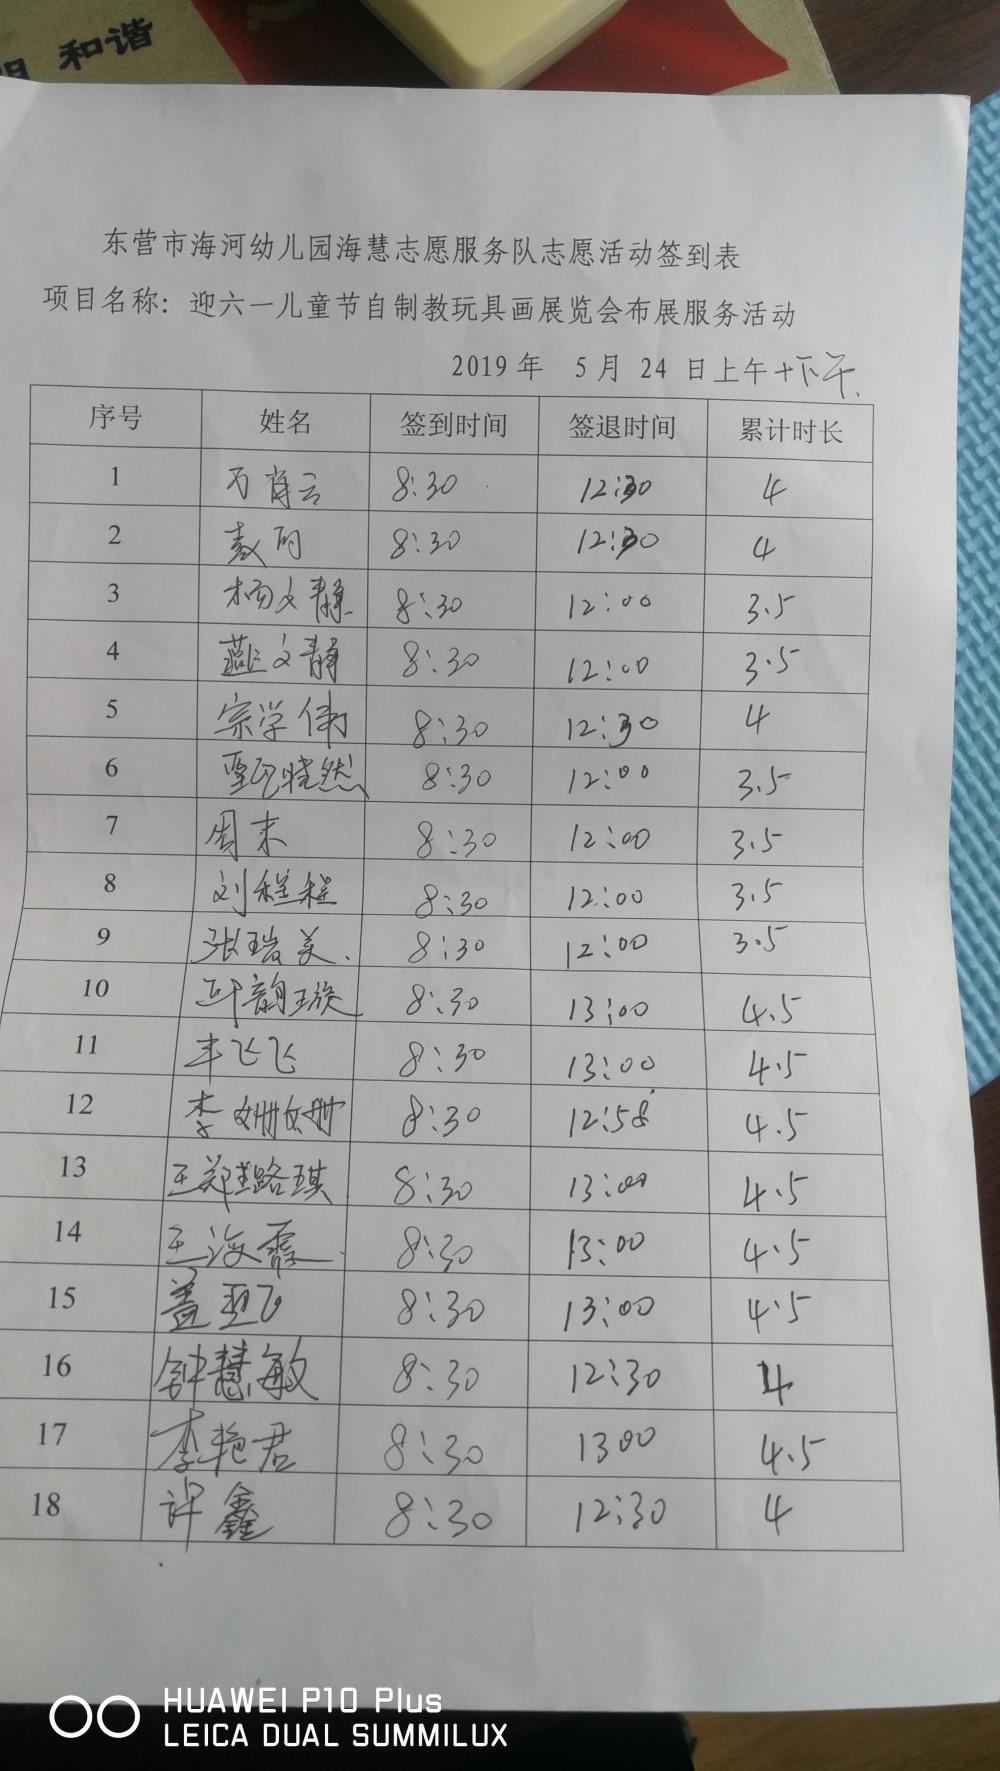 和谐
东营市海河幼儿园海慧志愿服务队志愿活动签到表
项目名称：迎六一儿童节自制教玩具画展览会布展服务活动
2019年 5月 24日上午+下午.
序号 姓名 签到时间 签退时间 累计时长
1 万肖云 8:30 12:30 4
2 8:30 12:30 4
3 杨文静 8:30 12:00 3.5
4 燕文静 8:30 12:00 3.5
5 宗学伟 8:30 12:30 4
6 8:30 12:00 3.5
7 周末 8:30 12:00 3.5
8 刘程程 8:30 12:00 3.5
9 张瑞美. 8:30 12:00 3.5
10 韵璇 8:30 13:00 4.5
11 丰飞飞 8:30 13:00 4.5
12 李姗姗 8:30 12:58 4.5
13 王郑璐琪 8:30 13:00 4.5
14 王海霞. 8:30 13:00 4.5
15 盖亚飞 8:30 13:00 4.5
16 钟慧敏 8:30 12:30 4
17 李艳君 8:30 1300 4.5
18 许鑫 8:30 12:30 4
HUAWEI P10 Plus
LEICA DUAL SUMMILUX